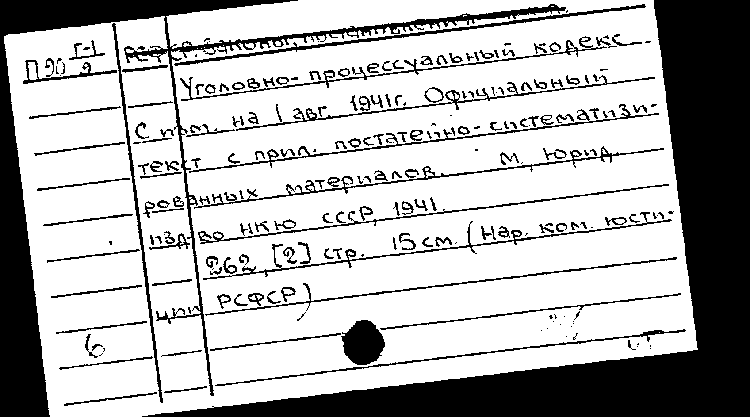 П90 Г-1/9
РСФСР. Законы, постановления и т.д.
Уголовно-процессуальный кодекс
С пом. на 1 авг. 1941г. Официальный
текст с прил. постатейно-систематизи-
рованных материалов. М, Юрид.
изд-во НКЮ СССР, 1941.
262, [2] стр. 15 см. (Нар. ком. юсти-
ции РСФСР)
6